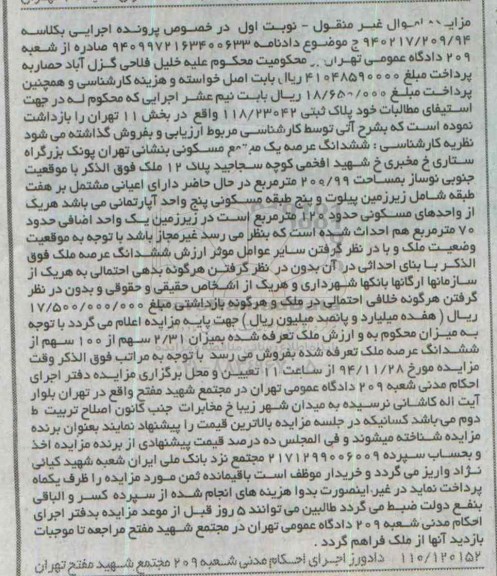 مزایده اموال غیر منقول - نوبت اول در خصوص پرونده اجرایی بکلاسه
۹۴۰۲۱۷/۲۰۹/۹۴ ج موضوع دادنامه ۹۴۰۹۹۷۲۱۶۳۴۰۰۶۳۳ صادره از شعبه
۲۰۹ دادگاه عمومی تهران محکومیت محکوم علیه خلیل فلاحی گزل آباد حصاربه
پرداخت مبلغ ۴۱۰۴۸۵۹۰۰۰۰ ریال بابت اصل خواسته و هزینه کارشناسی و همچنین
پرداخت مبلغ ۱۸/۶۵۰/۰۰۰ ریال بابت نیم عشر اجرایی که محکوم له در جهت
استیفای مطالبات خود پلاک ثبتی ۱۱۸/۲۳۰۴۲ واقع در بخش ۱۱ تهران را بازداشت
نموده است که بشرح آتی توسط کارشناسی مربوط ارزیابی و بفروش گذاشته می شود
نظریه کارشناسی : ششدانگ عرصه یک مجتمع مسکونی بنشانی تهران پونک بزرگراه
ستاری خ مخبری خ شهید افخمی کوچه سجاجید پلاک ۱۲ ملک فوق الذکر با موقعیت
جنوبی نوساز بمساحت ۲۰۰/۹۹ مترمربع در حال حاضر دارای اعیانی مشتمل بر هفت
طبقه شامل زیرزمین پیلوت و پنج طبقه مسکونی پنج واحد آپارتمانی می باشد هریک
از واحدهای مسکونی حدود ۱۲۰ مترمربع است در زیرزمین یک واحد اضافی حدود
۷۰ مترمربع هم احداث شده است که بنظر می رسد غیرمجاز باشد با توجه به موقعیت
وضعیت ملک و با در نظر گرفتن سایر عوامل موثر ارزش ششدانگ عرصه ملک فوق
الذکر با بنای احداثی در آن بدون در نظر گرفتن هرگونه بدهی احتمالی به هریک از
سازمانها ارگانها بانکها شهرداری و هریک از اشخاص حقیقی و حقوقی و بدون در نظر
گرفتن هرگونه خلافی احتمالی در ملک و هرگونه بازداشتی مبلغ ۱۷/۵۰۰/۰۰۰/۰۰۰
ریال ( هفده میلیارد و پانصد میلیون ریال ) جهت پایه مزایده اعلام می گردد با توجه
به میزان محکوم به و ارزش ملک تعرفه شده بمیزان ۲/۳۱ سهم از ۱۰۰ سهم از
ششدانگ عرصه ملک تعرفه شده بفروش می رسد با توجه به مراتب فوق الذکر وقت
مزایده مورخ ۹۴/۱۱/۲۸ از ساعت ۱۱ تعیین و محل برگزاری مزایده دفتر اجرای
احکام مدنی شعبه ۲۰۹ دادگاه عمومی تهران در مجتمع شهید مفتح واقع در تهران بلوار
آیت اله کاشانی نرسیده به میدان شهر زیبا خ مخابرات جنب کانون اصلاح تربیت ط
دوم می باشد کسانیکه در جلسه مزایده بالاترین قیمت را پیشنهاد نمایند بعنوان برنده
مزایده شناخته میشوند و فی المجلس ده درصد قیمت پیشنهادی از برنده مزایده اخذ
و بحساب سپرده ۲۱۷۱۲۹۹۰۰۶۰۰۹ مجتمع نزد بانک ملی ایران شعبه شهید کیائی
نژاد واریز می گردد و خریدار موظف است باقیمانده ثمن مورد مزایده را ظرف یکماه
پرداخت نماید در غیر اینصورت بدوا هزینه های انجام شده از سپرده کسر و الباقی
بنفع دولت ضبط می گردد طالبین می توانند ۵ روز قبل از موعد مزایده بدفتر اجرای
احکام مدنی شعبه ۲۰۹ دادگاه عمومی تهران در مجتمع شهید مفتح مراجعه تا موجبات
بازدید آنها از ملک فراهم گردد .
۱۱۰/۱۲۰۱۵۲ دادورز اجرای احکام مدنی شعبه ۲۰۹ مجتمع شهید مفتح تهران